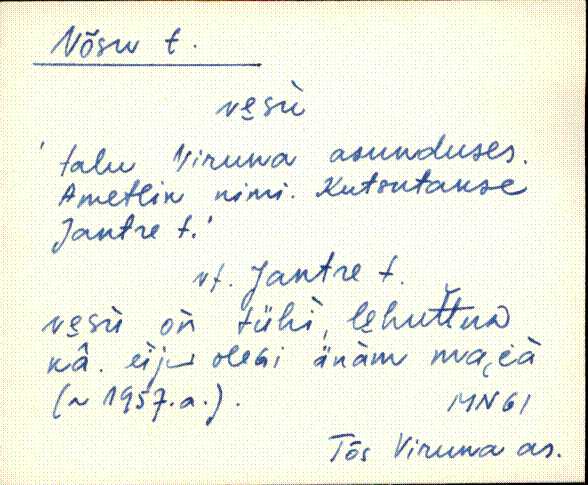 Nõsu t.
nẹsù
'talu Viruna asunduses.
Ametlik nimi. Kutsutakse
Jantre t.'
vt. Jantre t.
nẹsù oǹ tühì, lẹhuttnà
kâ. olèài änàm
(~ 1957.a.). MN61
Tõs Viruna as.